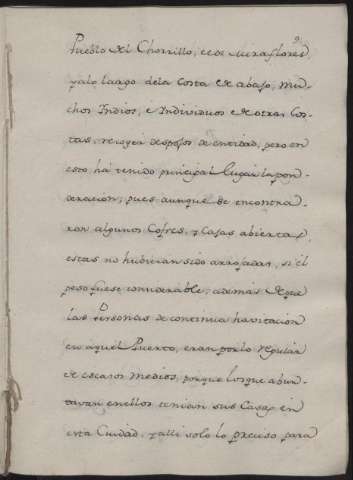 9
Pueblo del Chorrillo, el de Miraflores,
y a lo largo de la Costa de abajo, mu-
chos Indios, é Individuos de otras Cas-
tas, recogían despojos de entidad, pero en
esto ha tenido principal lugar la pon-
deracion; pues aunque se encontra-
ron algunos Cofres, y Casas abiertas,
estas no hubieran sido arrojadas, si el
peso fuese considerable, ademas de que
las Personas de continua havitacion
en aquel Puerto, eran por lo regular
de escasos medios, porque los que abun-
davan en ellos tenian sus Casas en
esta Ciudad, y alli solo lo preciso para